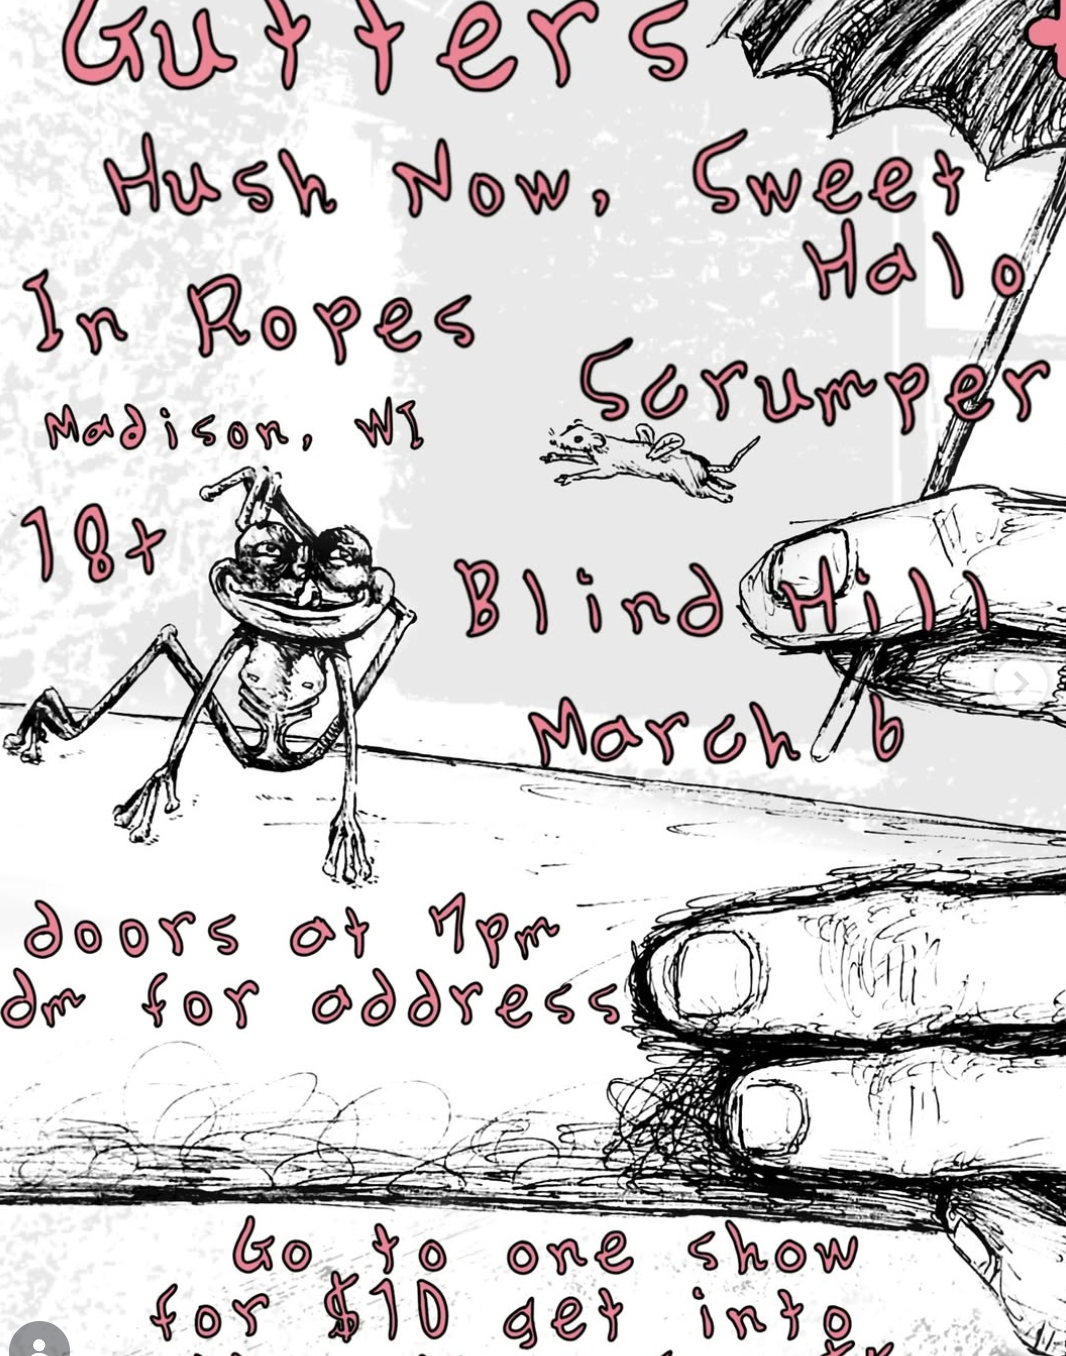 Gutters
Hush Now, Sweet
Halo
In Ropes
Scrumper
Madison, WI
18+
Blind Hill
March 6
doors at 7pm
dm for address
Go to one show
for $10 get into